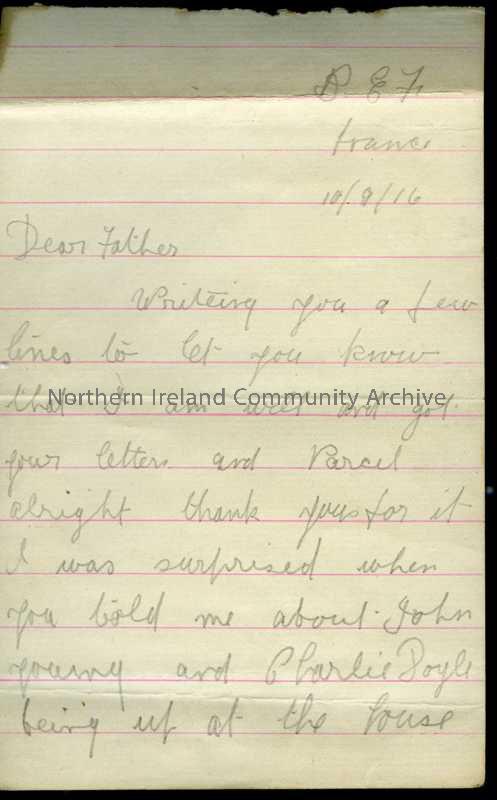 B E F
France
10/9/16
Dear Father
Writeing you a few
lines to let you know
that I am well and got
Northern Ireland Community Archive
your letters and Parcel
alright thank yous for it
I was surprised when
you told me about John
young and Charlie Doyle
being up at the house